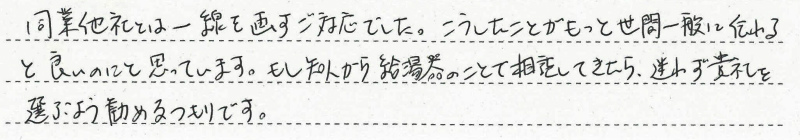 同業他社とは一線を画すご対応でした。こうしたことがもっと世間一般に伝わる
と良いのにと思っています。もし知人から給湯器のことで相談してきたら、迷わず貴社を
選ぶよう勧めるつもりです。